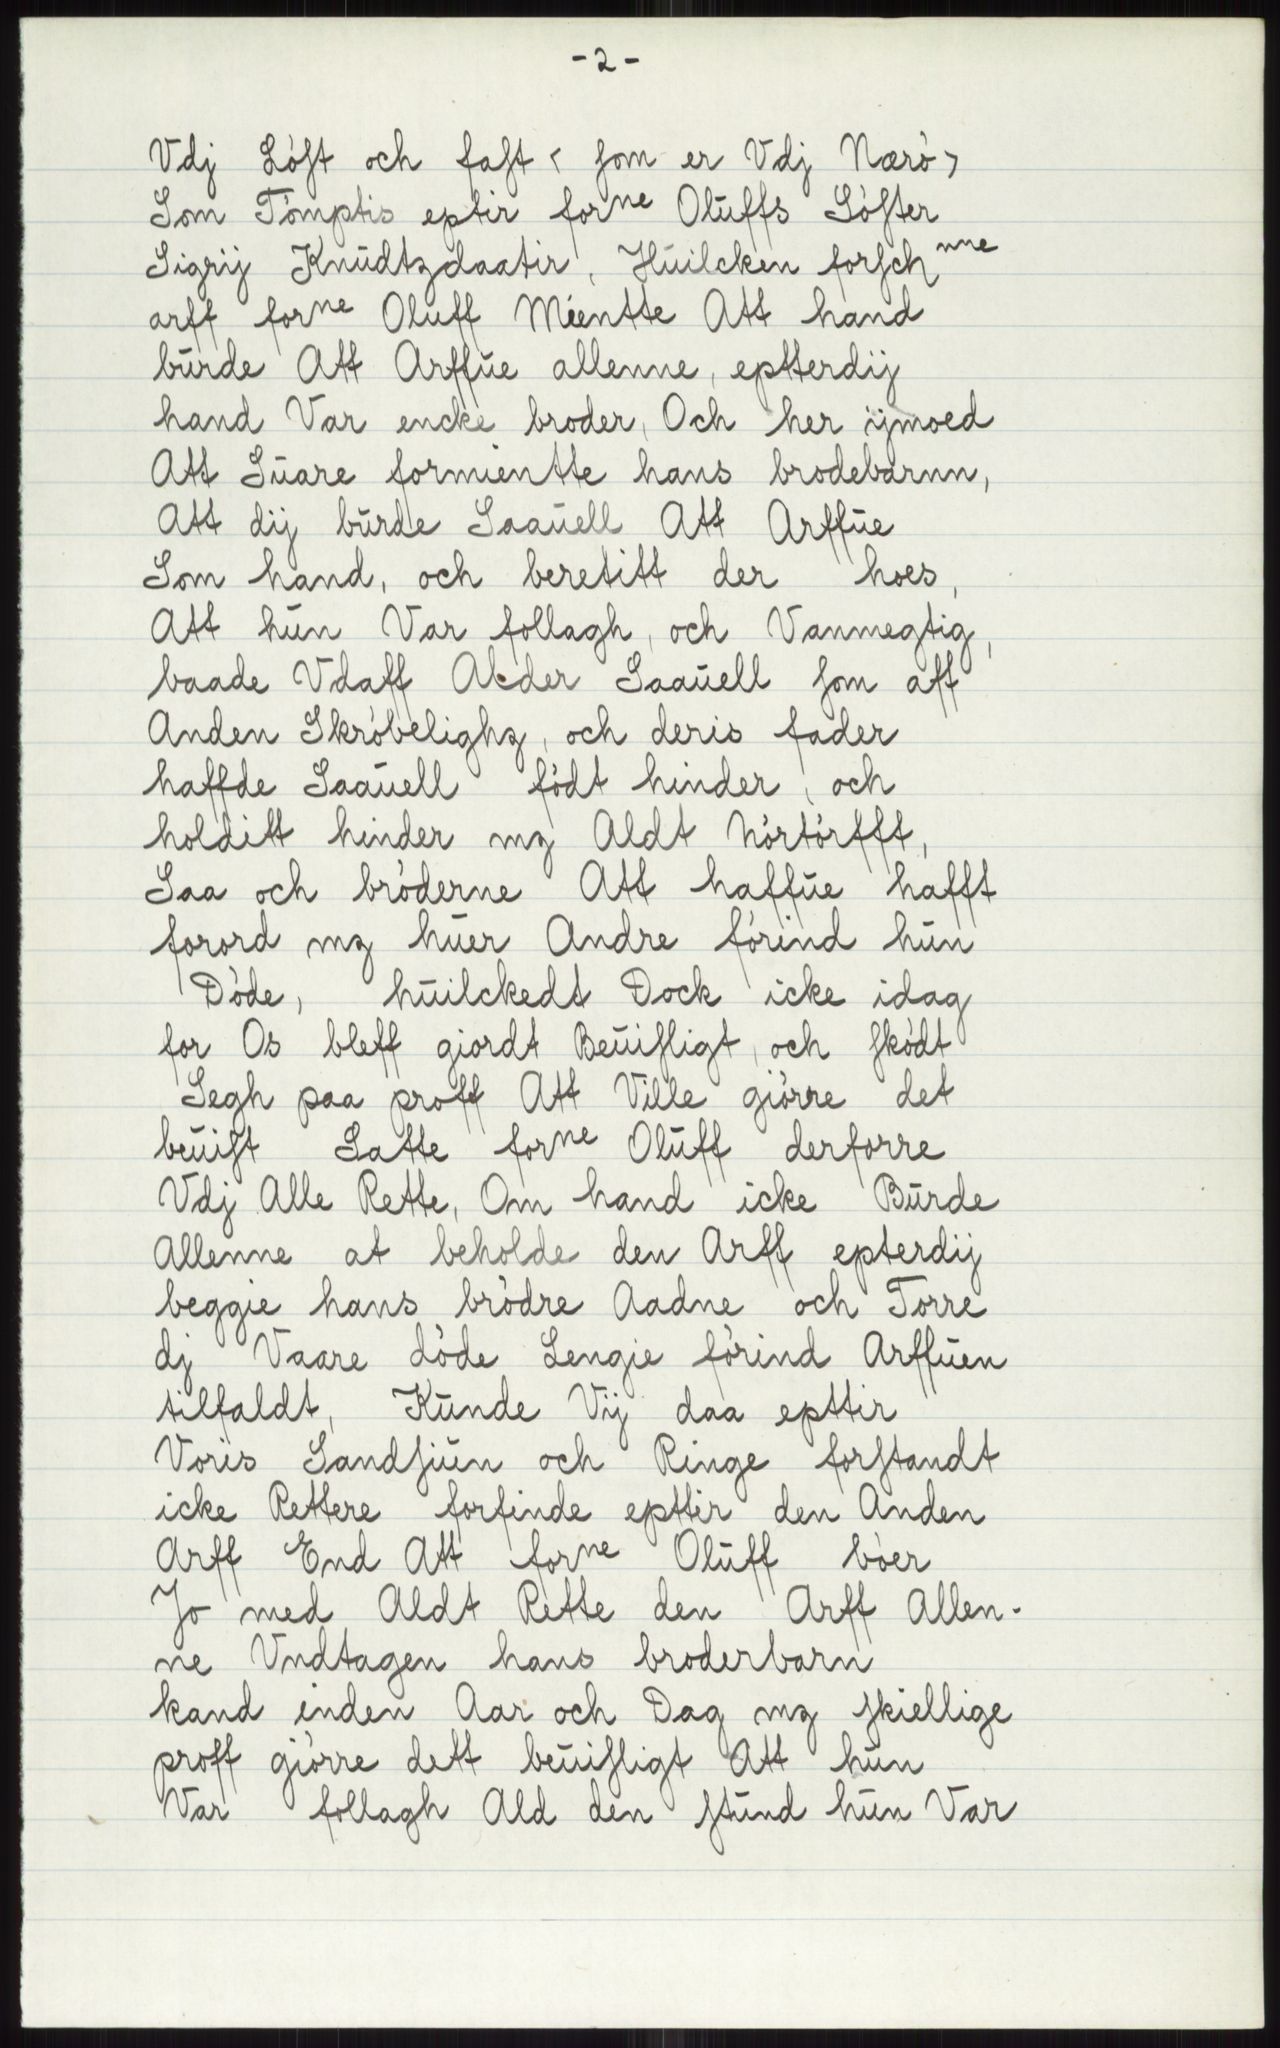 - 2 -
Vdj Löst och fast < som er Vdj Nærö >
Som Tömptis eptir forne Oluffs Söster
Sigrij Knudtzdaatir, Huilcken forschne
arff forne Oluff Meentte Att hand
burde Att Arffue allenne, eptterdij
hand Var encke broder, Och her ijmoed
Att Suare formientte hans brodebarnn,
Att dij burde Saauell Att Arffue
Som hand, och beretitt der hoes,
Att hun Var follagh, och Vanmegtig,
baade Vdaff Alder Saauell som aff
Anden Skröbelighz, och deris fader
haffde Saauell födt hinder, och
holditt hinder mz Aldt Nörtörfft,
Saa och bröderne Att haffue hafft
forord mz huer Andre förind hun
Döde, huilckedt Dock icke idag
for Os bleff giordt Beuisligt, och sködt
Segh paa proff Att Ville giörre det
beuist Satte forne Oluff derforre
Vdj Alle Rette, Om hand icke Burde
Allenne at beholde den Arff epterdij
beggie hans brödre Aadne och Torre
dj Vaare döde Lengie förind Arffuen
tilfaldt, Kunde Vij daa epttir
Voris Sandsiun och Ringe forstandt
icke Rettere forfinde epttir den Anden
Arff End Att forne Oluff böer
Jo med Aldt Rette den Arff Allen-
ne Vndtagen hans broderbarn
kand inden Aar och Dag mz skiellige
proff giörre dett beuisligt Att hun
Var follagh Ald den stund hun Var